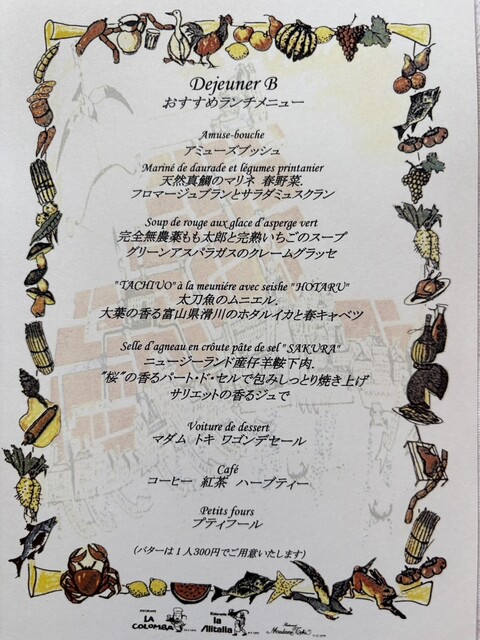 Dejeuner B
おすすめランチメニュー
Amuse-bouche
アミューズブッシュ
Mariné de daurade et légumes printanier
天然真鯛のマリネ 春野菜.
フロマージュブランとサラダミュスクラン
Soup de rouge aux glace d'asperge vert
完全無農薬もも太郎と完熟いちごのスープ
グリーンアスパラガスのクレームグラッセ
"TACHIUO" à la meuniére avec seishe "HOTARU"
太刀魚のムニエル.
大葉の香る富山県滑川のホタルイカと春キャベツ
Selle d'agneau en crôute pâte de sel "SAKURA"
ニュージーランド産仔羊鞍下肉.
"桜"の香るパート・ド・セルで包みしっとり焼き上げ
サリエットの香るジュで
Voiture de dessert
マダム トキ ワゴンデセール
Café
コーヒー 紅茶 ハーブティー
Petits fours
プティフール
(バターは1人300円でご用意いたします)
LA COLOMBA
la Alitalia
Madame Toki